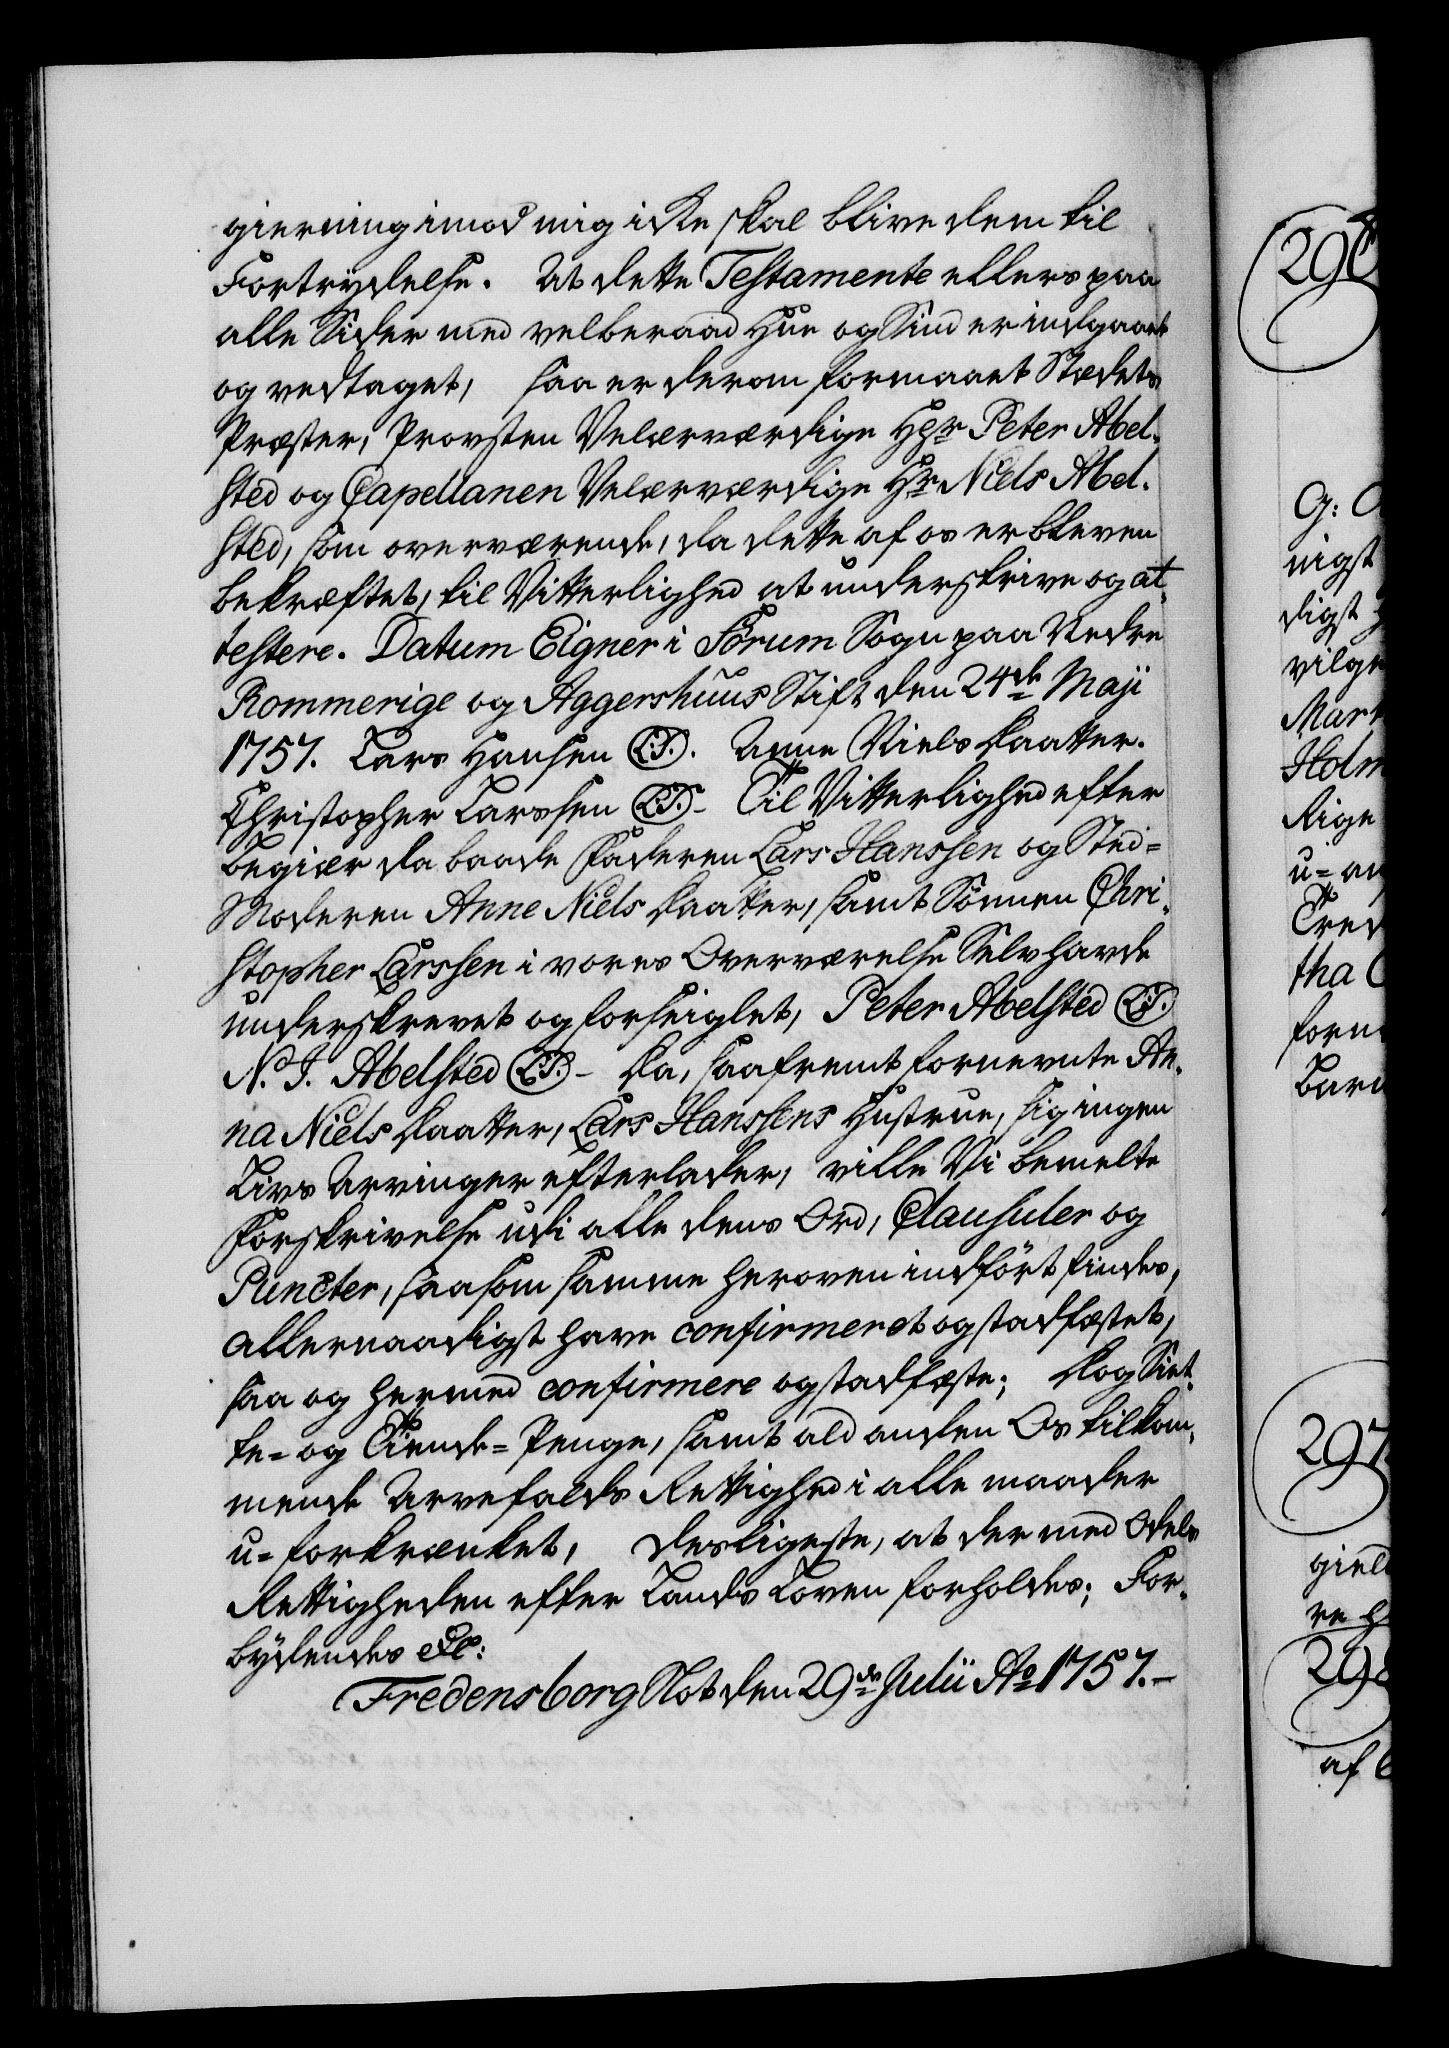 gierning imod mig icke skal blive dem til
Fortrydelse. At dette Testamente ellers paa
alle Sider med velberaad Hue og Sind er indgaaet
og vedtaget, saa er derom formaaet Stædets
Præster, Provsten Velærværdige Hgr Peter Abel-
sted og Capellanen Velærværdige Hr Niels Abel-
sted, som overværende, da dette af os er bleven
bekræftet, til Vitterlighed at underskrive og at-
testere. Datum Eigner i Forum Sogn paa Nedre
Rommerige og Aggershuus Stift den 24de Maji
1757. Lars Hansen (L.S.). Anne Niels Daatter.
Christopher Larssen (L.S.) - Til Vitterlighed efter
Begiær da baade Faderen Lars Hanssen og Sted=
Moderen Anne Niels Daatter, samt Sönnen Chri-
stopher Larssen i vores Overværelse Selv havde
underskrevet og forseiglet, Peter Abelsted (L.S.)
N. J. Abelsted (L.S.) - Da, saafremt fornevnte An-
na Niels Daatter, Lars Hanssens Hustrue, sig ingen
Livs Arvinger efterlader, ville Vi bemelte
Forskrivelse udi alle dens Ord, Clausuler og
Puncter, saasom samme heroven indfört findes,
allernaadigst have confirmeret og stadfæstet,
saa og hermed confirmere og stadfæste; Dog Siet-
te= og Tiende=Penge, samt ald anden Os tilkom-
mende Arvefalds Rettighed i alle maader
u=forkrænket, desligeste, at der med Odels
Rettigheden efter Lands Loven forholdes; For-
bydendes &c:
Fredensborg Slot den 29de Julii Ao 1757.-
297
nigst
digst
vilge
Holm
Rige
u=
tha
af